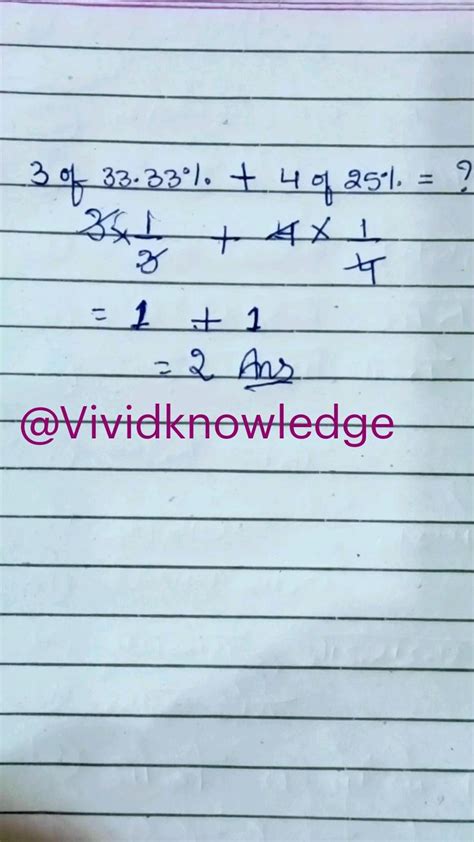 3 of 33.33% + 4 of 25% = ?
3 × 1/3 + 4 × 1/4
= 1 + 1
= 2 Ans
@Vividknowledge